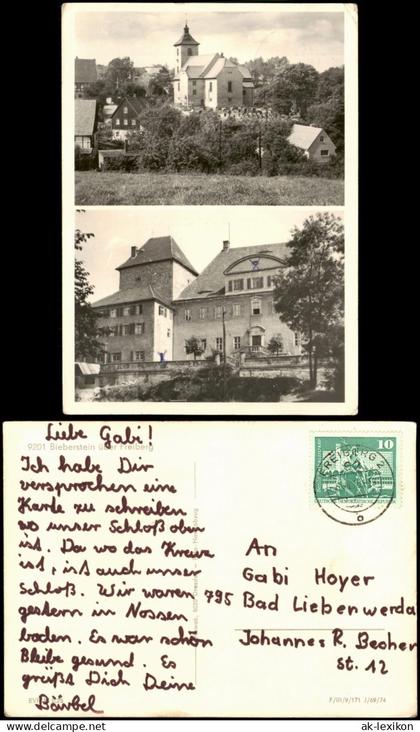 Liebe Gabi!
9201 Bieberstein über Freiberg
Ich habe Dir
versprochen eine
Karde zu schreiben
wo unser Schloß oben
ist. Da wo das Kreuze
ist, ist auch unser
Schloß. Wir waren
gestern in Nossen
baden. Es war schön
Bleibe gesund. Es
grüßt Dich Deine
Bärbel
FREIBERG 2
10
DEUTSCHE DEMOKRATISCHE REPUBLIK
An
Gabi Hoyer
795 Bad Liebenwerda
Johannes R. Becher
St. 12
F/III/9/171 J/69/74
ak-lexikon.com